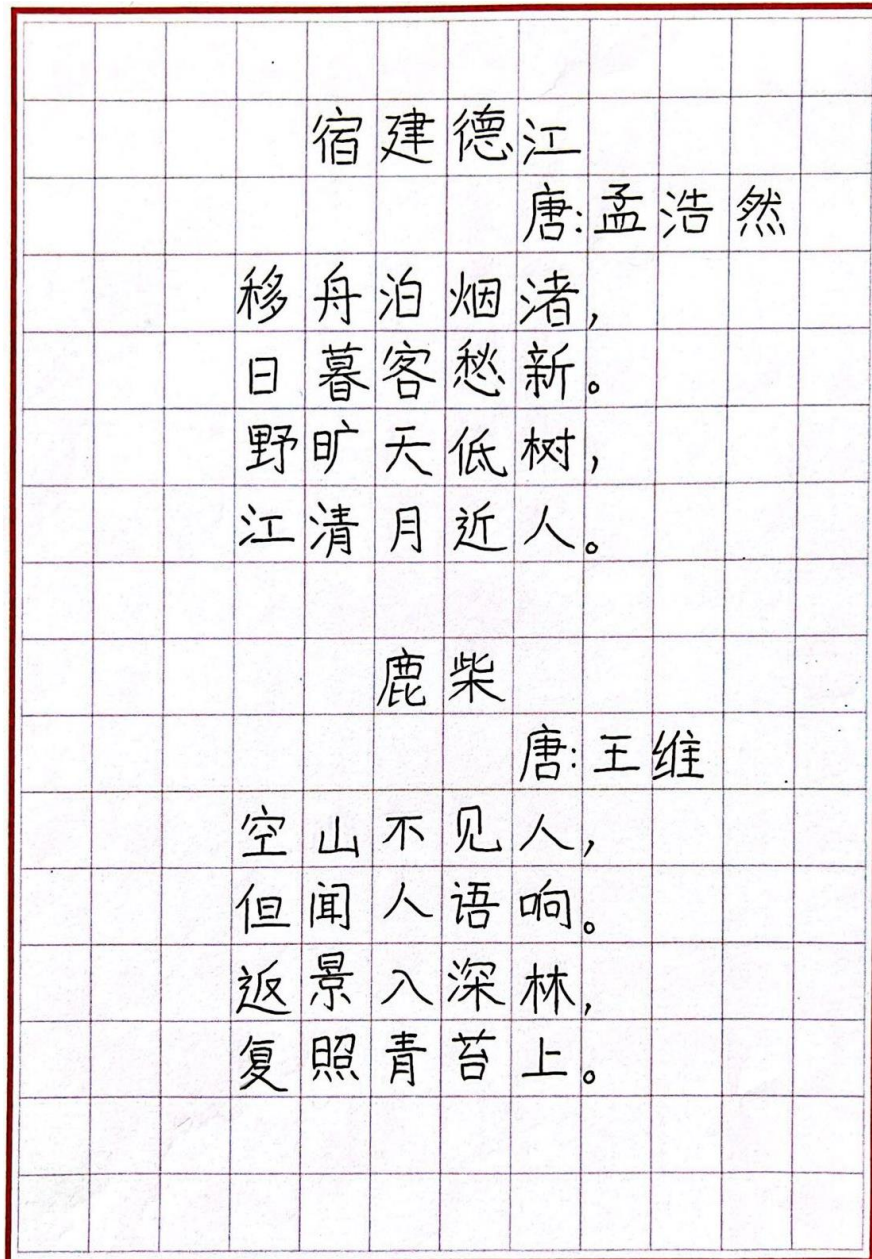 宿建德江
唐:孟浩然
移舟泊烟渚,
日暮客愁新。
野旷天低树,
江清月近人。
鹿柴
唐:王维
空山不见人,
但闻人语响。
返景入深林,
复照青苔上。